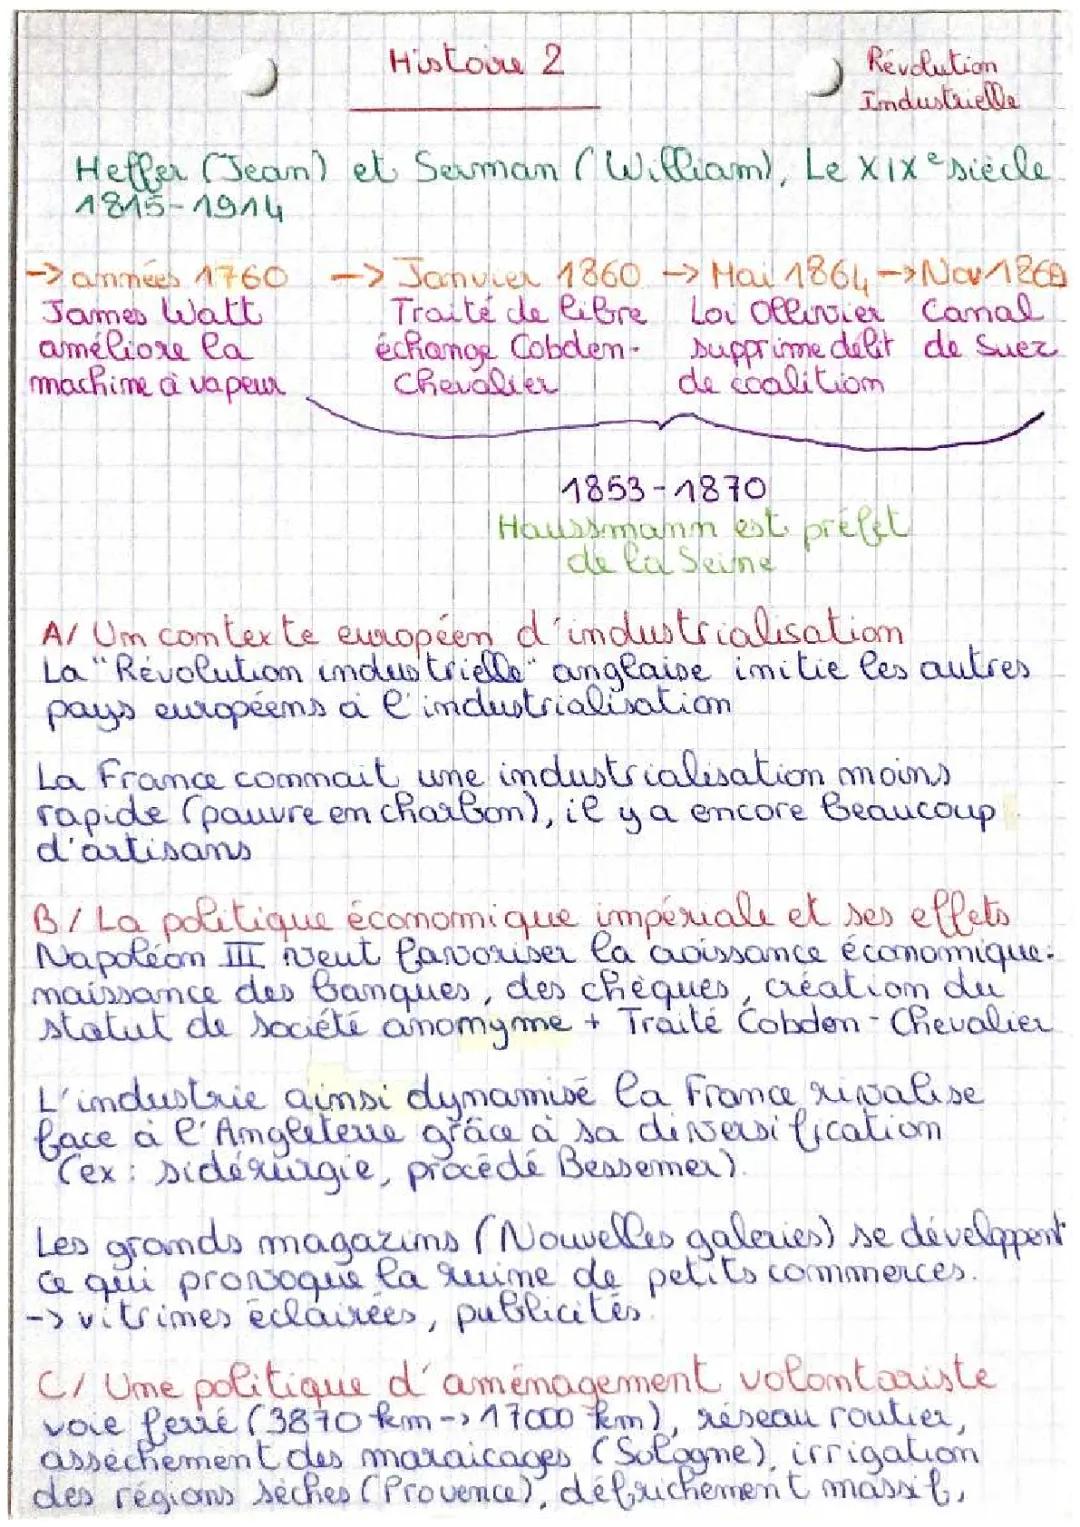 Histoire 2
Révolution
Industrielle
Heffer (Jean) et Serman (William), Le XIXe siècle
1815-1914
-> années 1760 -> Janvier 1860 -> Mai 1864 -> Nov 1869
James Watt Traité de libre Loi Ollivier Canal
améliore la échange Cobden- supprime délit de Suez
machine à vapeur Chevalier de coalition
1853-1870
Haussmann est préfet
de la Seine
A/ Un contexte européen d'industrialisation
La "Révolution industrielle" anglaise initie les autres
pays européens à l'industrialisation
La France connait une industrialisation moins
rapide (pauvre en charbon), il y a encore beaucoup
d'artisans
B/ La politique économique impériale et ses effets
Napoléon III veut favoriser la croissance économique:
naissance des banques, des chèques, création du
statut de société anomyme + Traité Cobden-Chevalier
L'industrie ainsi dynamisé la France rivalise
face à l'Angleterre grâce à sa diversification
(ex: sidérurgie, procédé Bessemer).
Les grands magazins (Nouvelles galeries) se développent
ce qui provoque la ruine de petits commerces.
-> vitrines éclairées, publicités.
C/ Une politique d'aménagement volontariste
voie ferré (3870 km -> 17000 km), réseau routier,
assèchement des maraicages (Sologne), irrigation
des régions sèches (Provence), défrichement massif,